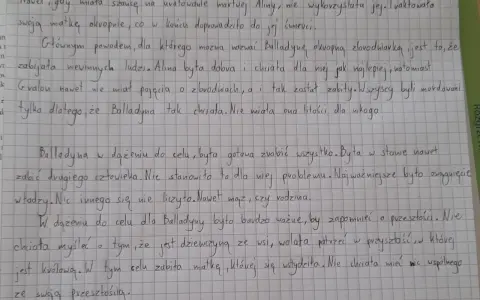 nawet, gdy miała szansę na uratowanie martwej Aliny, nie wykorzystała jej. Traktowała
swoją matkę okropnie, co w końcu doprowadziło do jej śmierci.
Głównym powodem, dla którego można nazwać Balladynę okrutną zbrodniarką, jest to, że
zabijała niewinnych ludzi. Alina była dobra i chciała dla niej jak najlepiej, natomiast
Gralon nawet nie miał pojęcia o zbrodniach, a i tak został zabity. Wszyscy byli mordowani
tylko dlatego, że Balladyna tak chciała. Nie miała ona litości dla nikogo.
Balladyna w dążeniu do celu, była gotowa zrobić wszystko. Była w stanie nawet
zabić drugiego człowieka. Nie stanowiło to dla niej problemu. Najważniejsze było osiągnięcie
władzy. Nic innego się nie liczyło. Nawet mąż, czy rodzina.
W dążeniu do celu dla Balladyny było bardzo ważne, by zapomnieć o przeszłości. Nie
chciała myśleć o tym, że jest dziewczyną ze wsi, wolała patrzeć w przyszłość, w której
jest królową. W tym celu zabiła matkę, której się wstydziła. Nie chciała mieć nic wspólnego
ze swoją przeszłością.